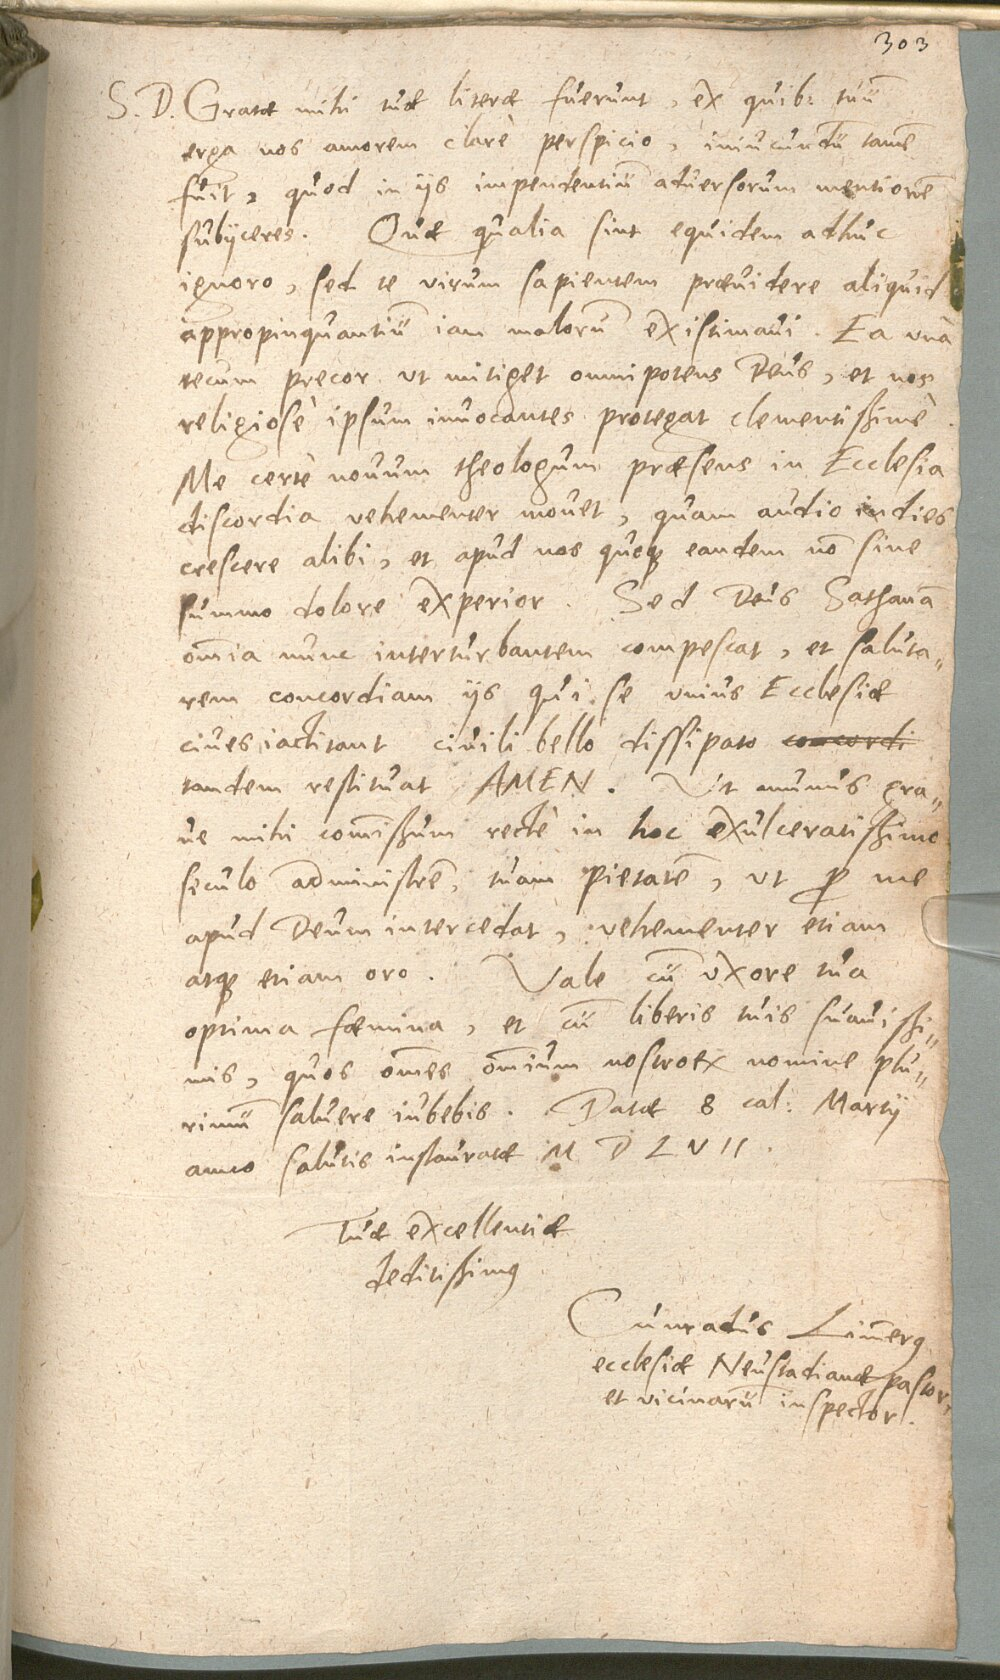 303
S. D. Gratæ mihi tuæ literæ fuerunt, ex quib: tuū
erga nos amorem clarè perspicio, iniucundū tamē
fuit, quod in ijs impendentiū aduersorum mentionē
subijceres. Quæ qualia sint equidem adhuc
ignoro, sed te virum sapientem præuidere aliquid
appropinquantiū iam malorū existimaui. Ea vnà
tecum precor vt mitiget omnipotens Deus, et nos
religiosè ipsum inuocantes protegat clementissimè.
Me certè nouum theologum præsens in Ecclesia
discordia vehementer mouet, quam audio indies
crescere alibi, et apud nos quoqꝫ eandem nō sine
summo dolore experior. Sed Deus Sathanā
om̄ia nunc interturbantem compescat, et saluta„
rem concordiam ijs qui se vnius Ecclesiæ
ciues iactitant ciuili bello dissipato concordi
tandem restituat AMEN. Vt munus gra„
ue mihi com̄issum rectè in hoc exulceratissimo
seculo administrē, tuam pietatē, vt ꝓ me
apud Deum intercedat, vehementer etiam
atqꝫ etiam oro. Vale cū vxore tua
optima fœmina, et cū liberis tuis suauissi„
mis, quos om̄es om̄ium nostroꝝ nomine plu„
rimū saluere iubebis. Datæ 8 cal: Martij
anno salutis instauratæ M D L V II.
Tuæ excellentiæ
deditissimꝰ
Cunradus Lim̄erꝰ
ecclesiæ Neustadianæ pastor,
et vicinarū inspector.